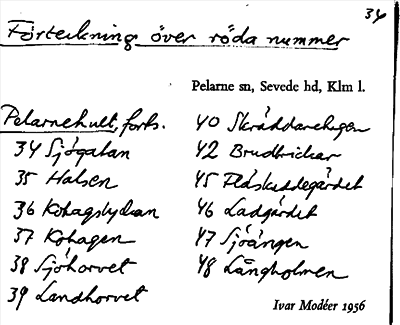 34
Förteckning över röda nummer
Pelarne sn, Sevede hd, Klm l.
Pelarnehult, forts.
34 Sjögatan
35 Halsen
36 Kohagslyckan
37 Kohagen
38 Sjöhorvet
39 Landhorvet
40 Skräddarehagen
42 Brudbrickar
45 Fläskeddegärdet
46 Ladgärdet
47 Sjöängen
48 Långholmen
Ivar Modéer 1956